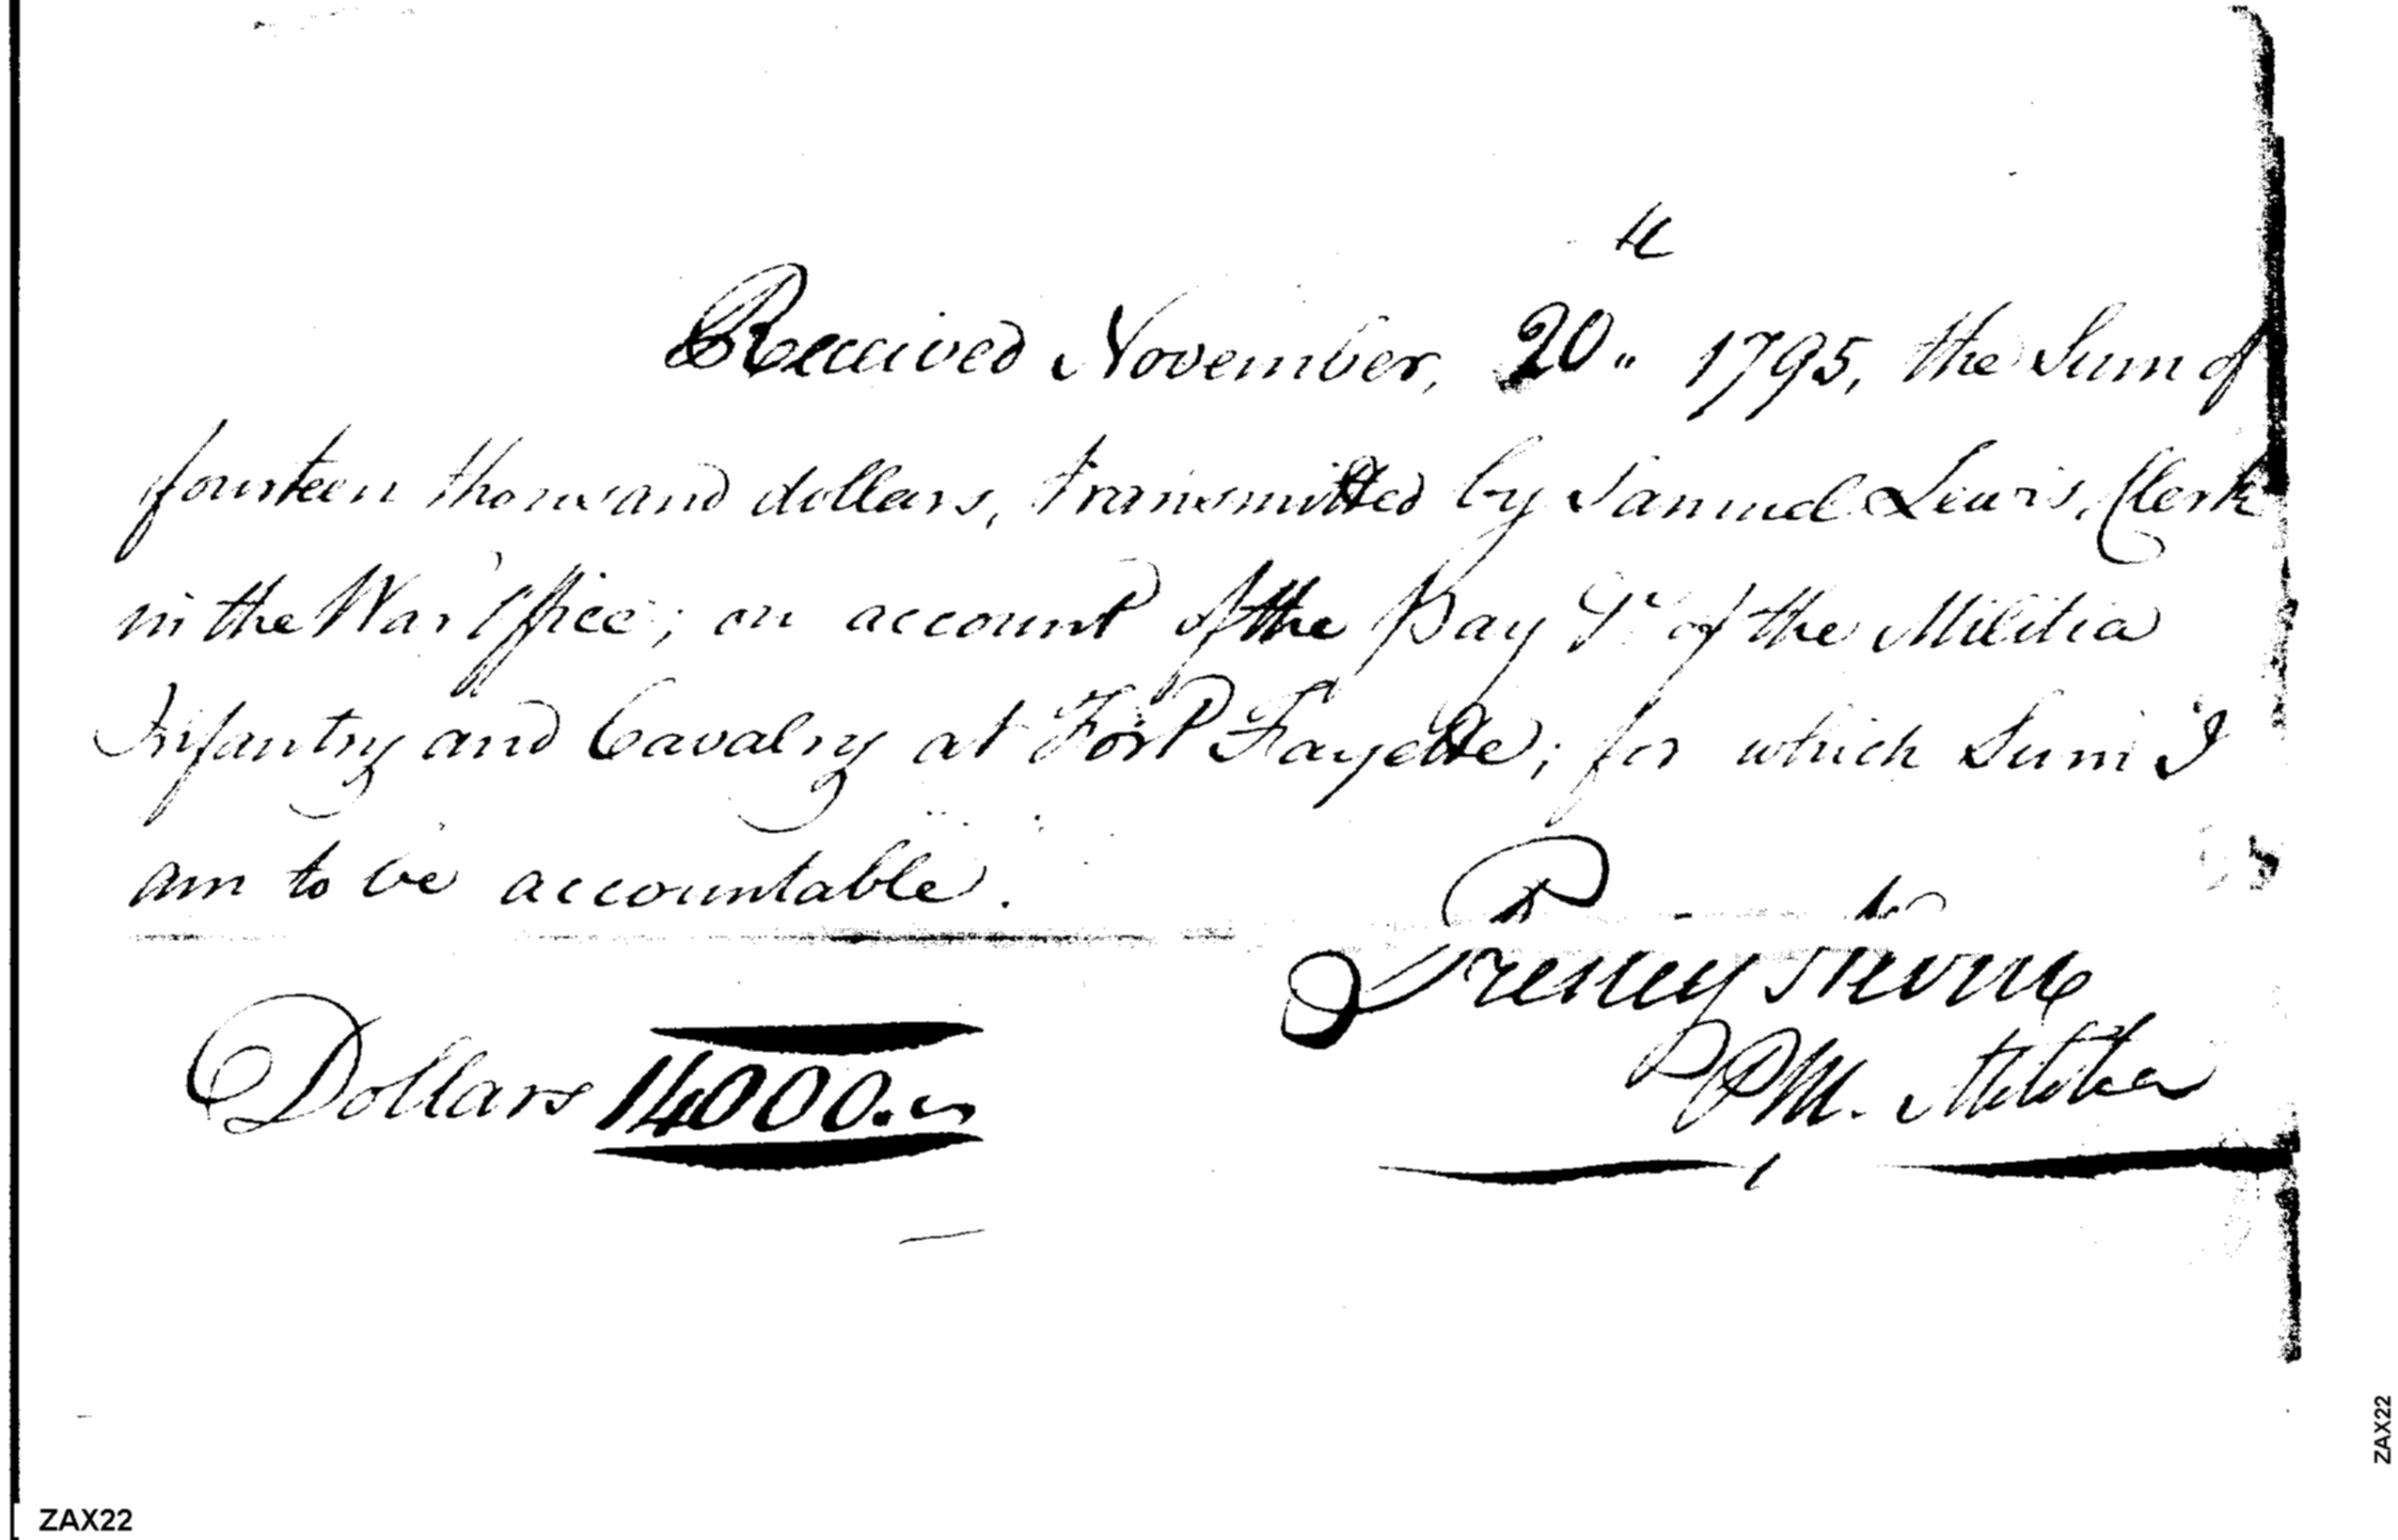 Received November, 20th 1795, the Sum of
fourteen thousand dollars, transmitted by Samuel Lewis, Clerk
in the War Office; on account of the Pay &c of the Militia
Infantry and Cavalry at Fort Fayette; for which Sum I
am to be accountable.
Presley Neville
Dollars 14000.
PPM. Militia
ZAX22
ZAX22